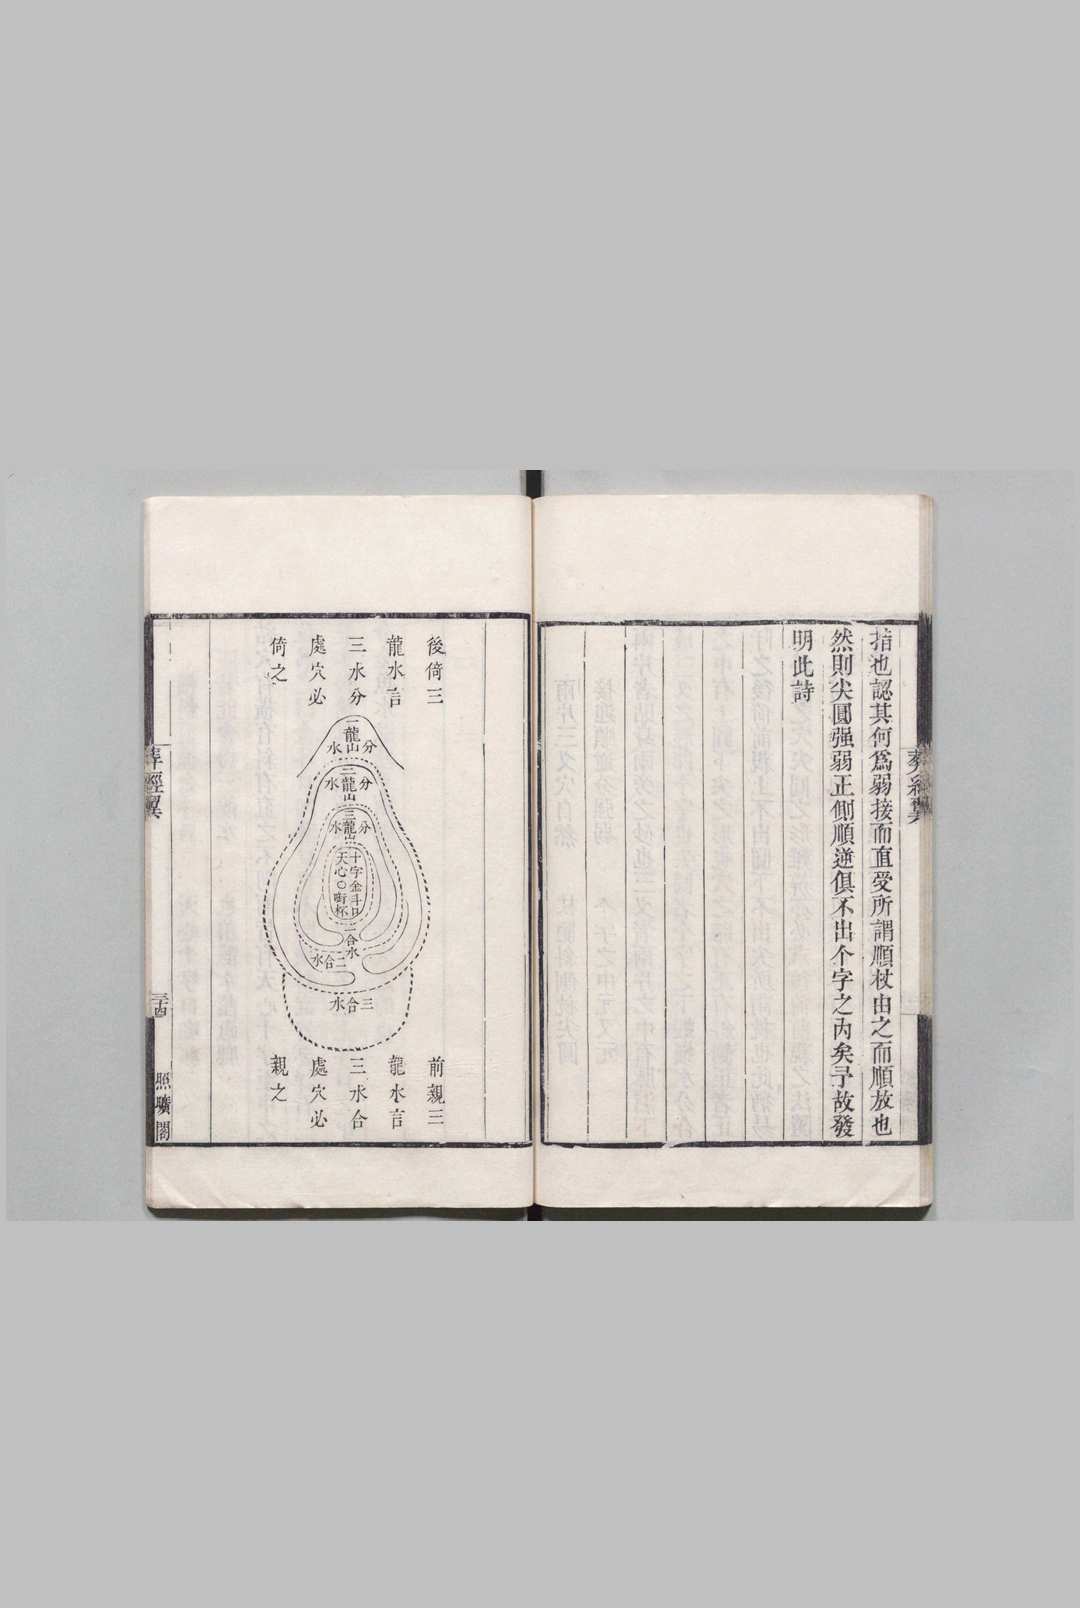 葬經翼
指也認其何爲弱接而直受所謂順杖由之而順放也
然則尖圓强弱正側順逆俱不出个字之内矣予故發
明此詩
後倚三
龍水言
三水分
處穴必
倚之
一龍山
分水
二龍山
分水
三龍山
分水
十字金斗口
天心〇㘅杯
一合水
二合水
三合水
前親三
龍水言
三水合
處穴必
親之
葬經翼
照曠閣